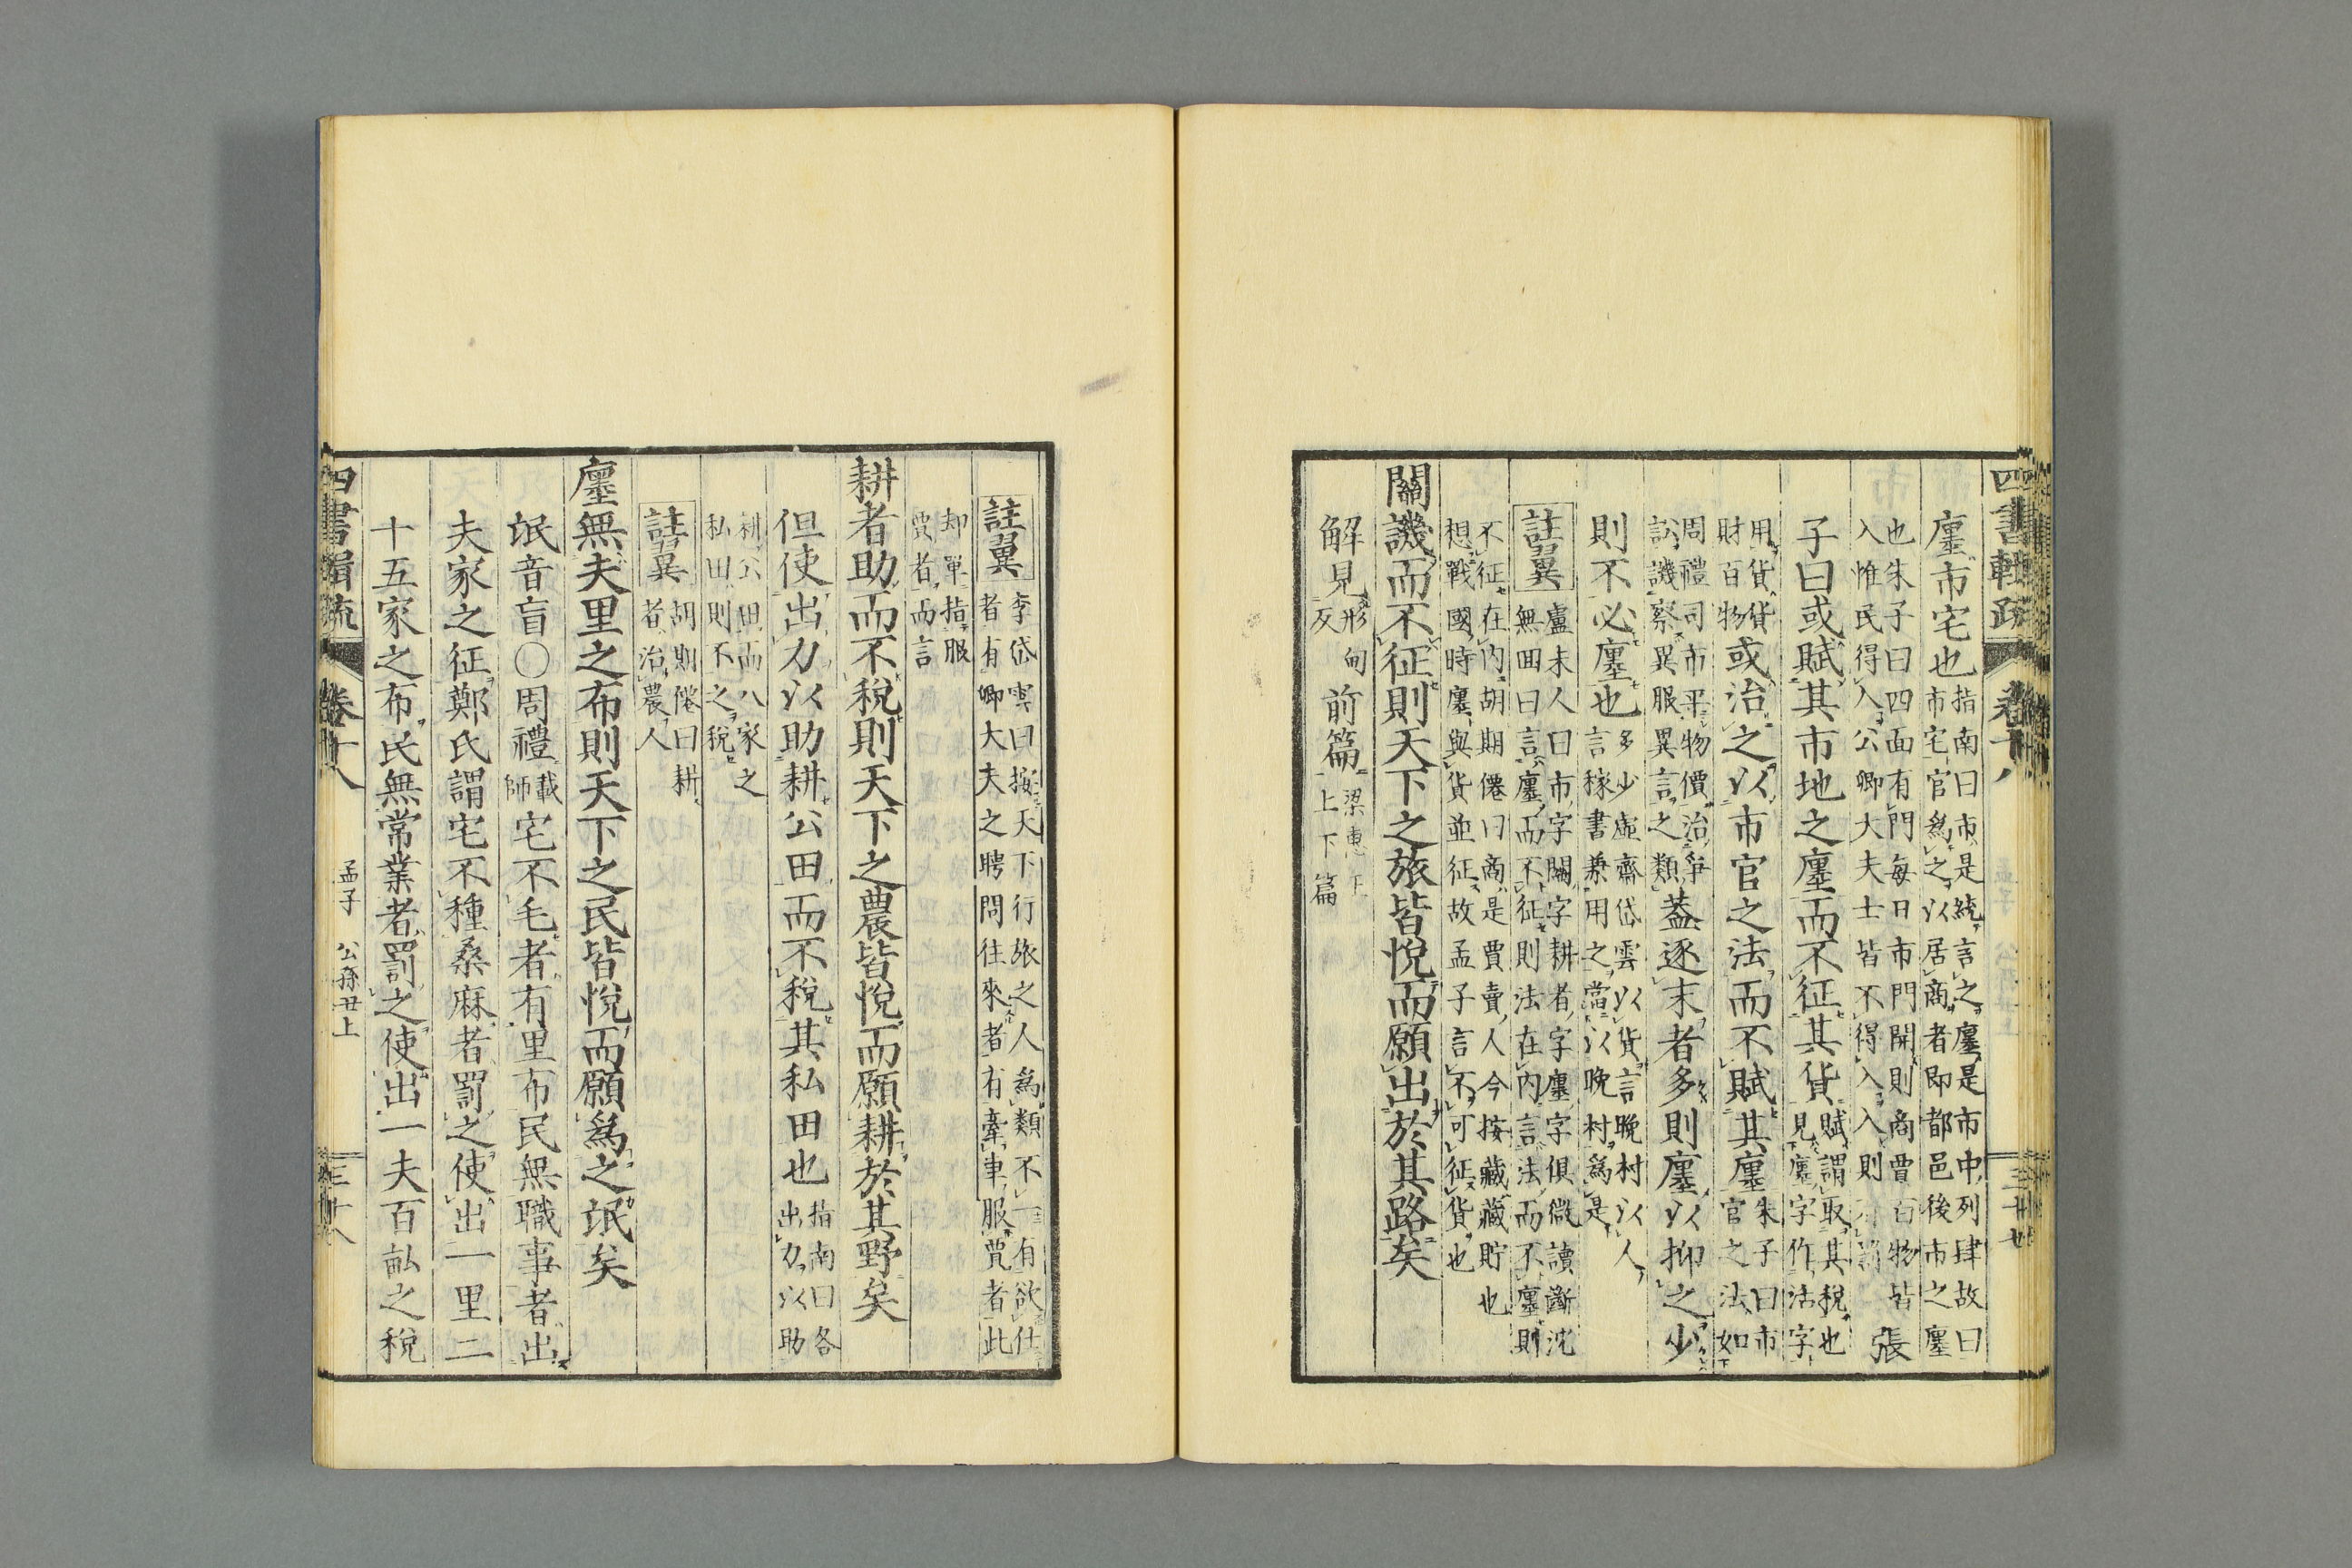 四書輯疏 卷十八 三十七
廛市宅也指南曰市是統言之廛是市中列肆故曰
市宅官爲之以居商者即都邑後市之廛
也朱子曰四面有門每日市門開則商賈百物皆
入惟民得入公卿大夫士皆不得入入則有罰張
子曰或賦其市地之廛而不征其貨賦謂取其稅也
見廛字作活字
用貨貨
財百物或治之以市官之法而不賦其廛朱子曰市
官之法如
周禮司市平物價治爭
訟譏察異服異言之類蓋逐末者多則廛以抑之少
則不必廛也多少虛齋岱雲以貨言晚村以人
言稼書兼用之當以晚村爲是
註翼盧未人曰市字關字耕者字廛字俱微讀斷沈
無回曰言廛而不征則法在內言法而不廛則
不征在內胡期僊曰商是賈賣人今按藏藏貯也
想戰國時廛與貨並征故孟子言不可征貨也
關譏而不征則天下之旅皆悅而願出於其路矣
解見形甸
反前篇梁惠王
上下篇
註翼李岱雲曰按天下行旅之人爲類不一有欲仕
者有卿大夫之聘問往來者有牽車服賈者此
却單指服
賈者而言
耕者助而不稅則天下之農皆悅而願耕於其野矣
但使出力以助耕公田而不稅其私田也指南曰各
出力以助
耕公田而八家之
私田則不之稅
註翼胡期僊曰耕
者治農人
廛無夫里之布則天下之民皆悅而願爲之氓矣
氓音盲○周禮載
師宅不毛者有里布民無職事者出
夫家之征鄭氏謂宅不種桑麻者罰之使出一里二
十五家之布民無常業者罰之使出一夫百畝之稅
四書輯疏 卷十八 孟子 公孫丑上 三十八